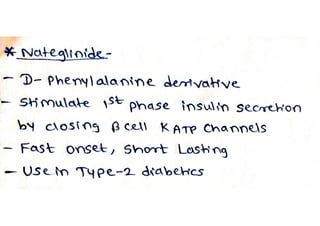 * Nateglinide -
- D- Phenylalanine derivative
- Stimulate 1st phase insulin secretion
by closing β cell K ATP Channels
- Fast onset, Short Lasting
- Use in Type-2 diabetics